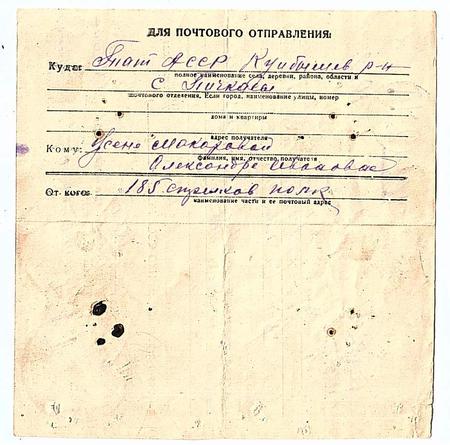 ДЛЯ ПОЧТОВОГО ОТПРАВЛЕНИЯ:
Куда: Тат АССР Куйбышев р-н
полное наименование села, деревни, района, области и
с Пичкасы
почтового отделения. Если город, наименование улицы, номер
дома и квартиры
адрес получателя
Кому: Макаровой
фамилия, имя, отчество получателя
Александре Ивановне
От кого: 185 стрелков полк
наименование части и ее почтовый адрес